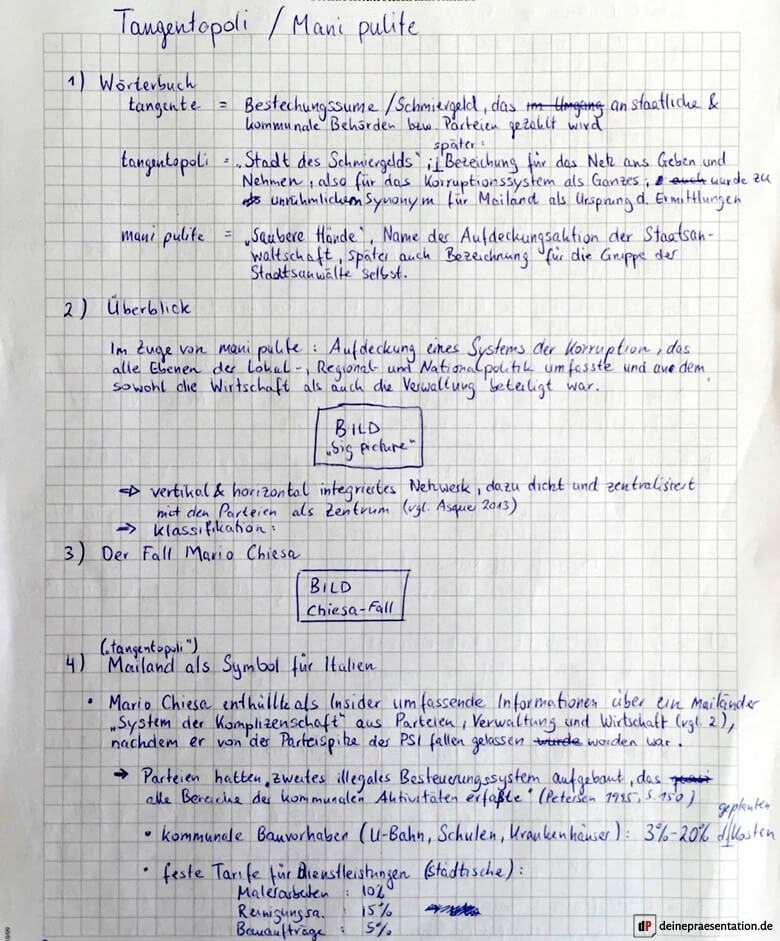 Tangentopoli / Mani pulite
1) Wörterbuch
tangente = Bestechungssume / Schmiergeld, das im Umgang an staatliche &
kommunale Behörden bzw. Parteien gezahlt wird
später:
tangentopoli = „Stadt des Schmiergelds“; Bezeichung für das Netz aus Geben und
Nehmen, also für das Korruptionssystem als Ganzes; auch wurde zu
unrühmlichem Synonym für Mailand als Ursprung d. Ermittlungen
mani pulite = „Saubere Hände“, Name der Aufdeckungsaktion der Staatsan-
waltschaft, später auch Bezeichnung für die Gruppe der
Staatsanwälte selbst.
2) Überblick
Im Zuge von mani pulite: Aufdeckung eines Systems der Korruption, das
alle Ebenen der Lokal-, Regional- und Nationalpolitik umfasste und aus dem
sowohl die Wirtschaft als auch die Verwaltung beteiligt war.
BILD
„big picture“
⇒ vertikal & horizontal integriertes Netzwerk, dazu dicht und zentralisiert
mit den Parteien als Zentrum (vgl. Asquer 2013)
⇒ Klassifikation:
3) Der Fall Mario Chiesa
BILD
Chiesa-Fall
(„tangentopoli“)
4) Mailand als Symbol für Italien
• Mario Chiesa enthüllte als Insider umfassende Informationen über ein Mailänder
„System der Komplizenschaft“ aus Parteien, Verwaltung und Wirtschaft (vgl. 2),
nachdem er von der Parteispitze des PSI fallen gelassen wurde worden war.
→ Parteien hatten „zweites illegales Besteuerungssystem aufgebaut, das quasi
alle Bereiche der kommunalen Aktivitäten erfaßte“ (Petersen 1995, S. 150)
geplanten
• kommunale Bauvorhaben (U-Bahn, Schulen, Krankenhäuser): 3%-20% d. Kosten
• feste Tarife für Dienstleistungen (städtische):
Malerarbeiten : 10%
Reinigungsa. : 15%
Bauaufträge : 5%
dP deinepraesentation.de